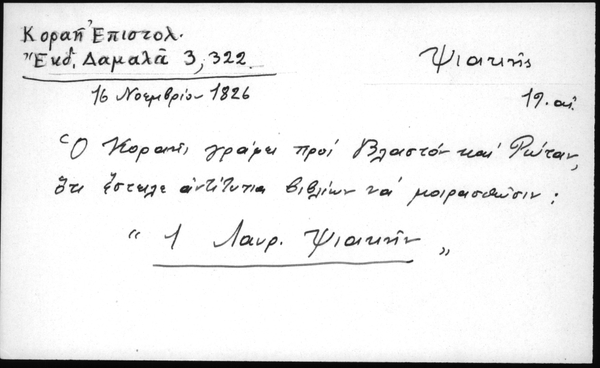 Κοραῆ Ἐπιστολ.
Ἔκδ. Δαμαλᾶ 3, 322
Ψιακῆς
16 Νοεμβρίου 1826
19. αἰ.
Ὁ Κοραῆς γράφει πρὸς Βλαστὸν καὶ Ρώταν,
ὅτι ἔστειλε ἀντίτυπα βιβλίων νὰ μοιρασθῶσιν :
" 1 Λαυρ. Ψιακῆν "